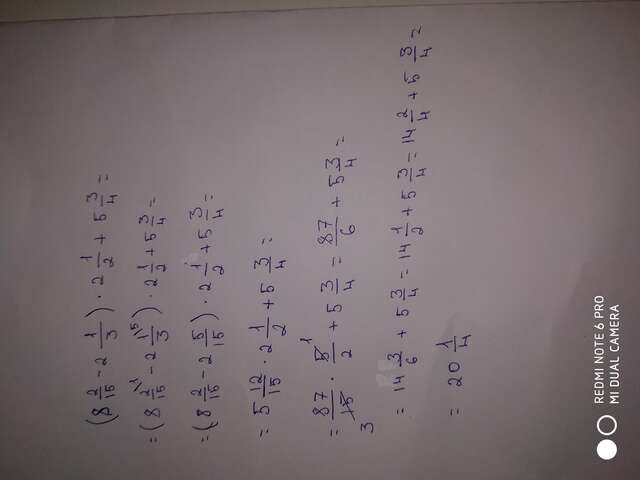 (8 2/15 - 2 1/3) · 2 1/2 + 5 3/4 =
= (8 2/15 \1 - 2 1/3 \5) · 2 1/2 + 5 3/4 =
= (8 2/15 - 2 5/15) · 2 1/2 + 5 3/4 =
= 5 12/15 · 2 1/2 + 5 3/4 =
= 87/15 3 · 5 1/2 + 5 3/4 = 87/6 + 5 3/4 =
= 14 3/6 + 5 3/4 = 14 1/2 + 5 3/4 = 14 2/4 + 5 3/4 =
= 20 1/4
REDMI NOTE 6 PRO
MI DUAL CAMERA